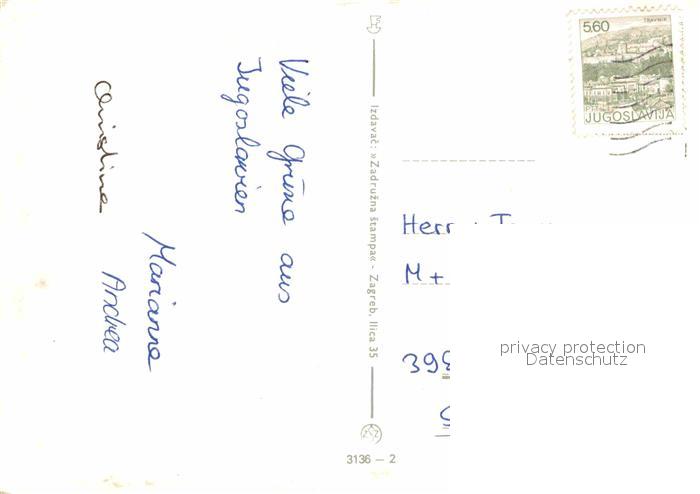 Viele Grüße aus
Jugoslawien
Marianne
Andrea
Christina
Izdavač: »Zadružna štampa« - Zagreb, Ilica 35
3136 — 2
5,60
TRAVNIK
JUGOSLAVIJA
Herr
M +
privacy protection
Datenschutz